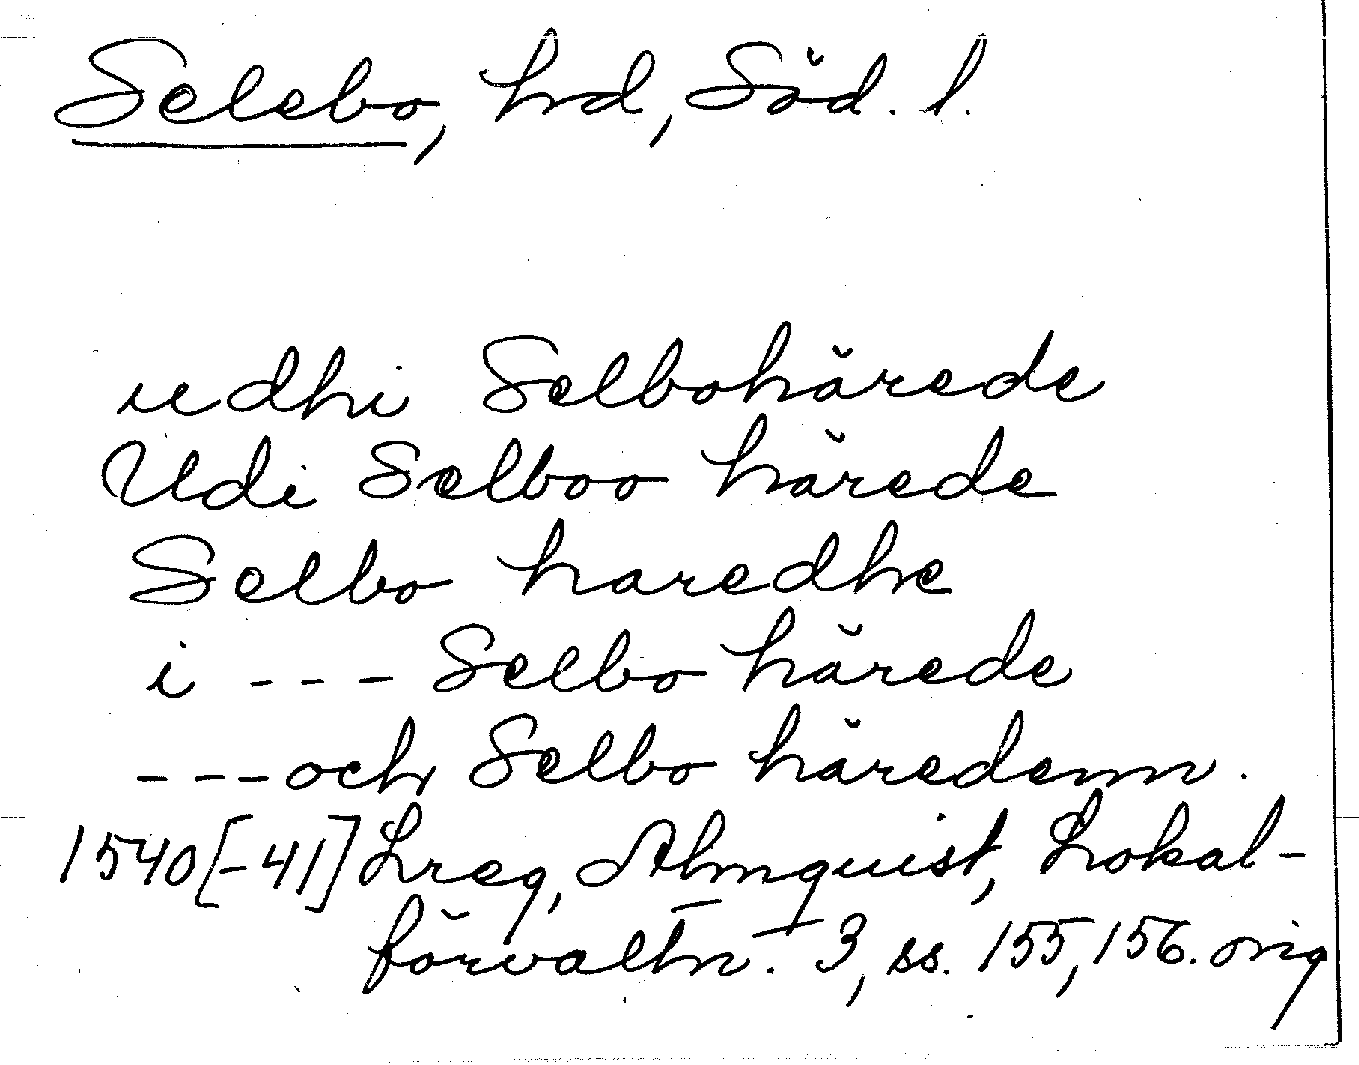 Selebo, hd, Söd. l.
udhi Selbohärede
Udi Selboo härede
Selbo haredhe
i --- Selbo härede
--- och Selbo häredenn.
1540[-41] Lreg, Almquist, Lokal-
förvaltn. 3, ss. 155, 156. orig